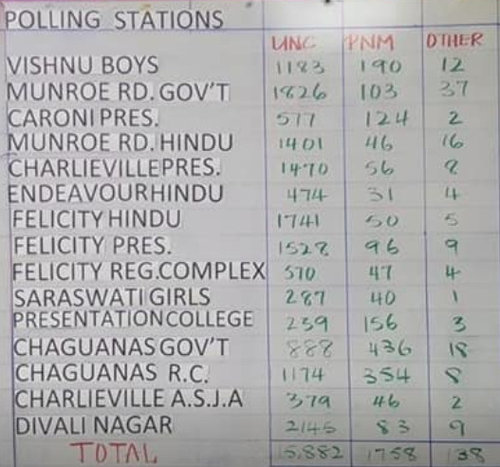 POLLING STATIONS
UNC PNM OTHER
VISHNU BOYS 1183 190 12
MUNROE RD. GOV'T 1826 103 37
CARONI PRES. 577 124 2
MUNROE RD. HINDU 1401 46 16
CHARLIEVILLE PRES. 1470 56 8
ENDEAVOUR HINDU 474 31 4
FELICITY HINDU 1741 50 5
FELICITY PRES. 1528 96 9
FELICITY REG.COMPLEX 570 47 4
SARASWATI GIRLS 287 40 1
PRESENTATION COLLEGE 239 156 3
CHAGUANAS GOV'T 888 436 18
CHAGUANAS R.C. 1174 354 8
CHARLIEVILLE A.S.J.A 379 46 2
DIVALI NAGAR 2145 83 9
TOTAL 15,882 1758 138